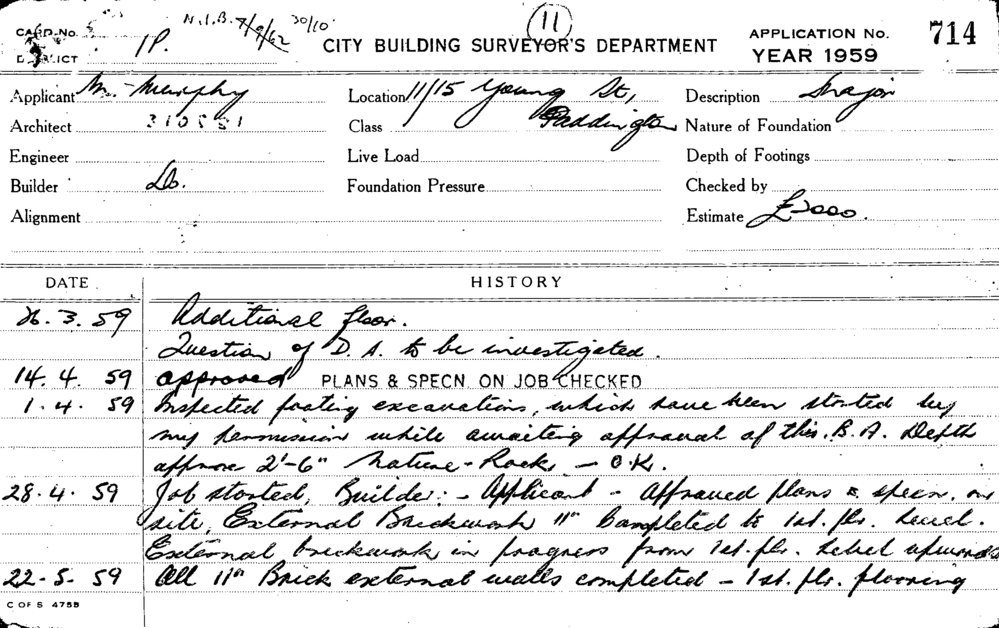 CARD No.
DISTRICT
1P.
N.I.B. 7/9/62 30/10
11
CITY BUILDING SURVEYOR'S DEPARTMENT
APPLICATION No. 714
YEAR 1959
Applicant M. Murphy Location 11/15 Young St, Paddington Description Major
Architect 310551 Class Nature of Foundation
Engineer Live Load Depth of Footings
Builder Do. Foundation Pressure Checked by
Alignment Estimate £2000.
DATE HISTORY
26.3.59 Additional floor.
Question of D.A. to be investigated.
14.4.59 approved PLANS & SPECN. ON JOB CHECKED
1.4.59 Inspected footing excavations, which have been started by
my permission while awaiting approval of this B.A. Depth
approx 2'-6" Nature - Rock - O.K.
28.4.59 Job started, Builder:- Applicant - Approved plans & specn. on
site, External Brickwork 11" Completed to 1st. flr. level.
External brickwork in progress from 1st. flr. level upwards
22-5-59 All 11" Brick external walls completed - 1st. flr. flooring
C OF S 4755